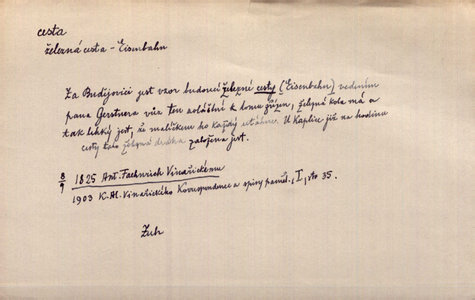 cesta
železná cesta - Eisenbahn
Za Budějovici jest vzor budoucí železné cesty (Eisenbahn) vedením
pana Gerstnera vůz ten zvláštní k tomu zřízen, železná kola má a
tak lehký jest, že malíčkem ho každý utáhne. U Kaplice již na hodinu
cesty tato železná dráha založena jest.
8/9 1825 Ant. Fähnrich Vinařickému
1903 K. Al. Vinařického Korrespondence a spisy pamět., I, str. 35.
Zub